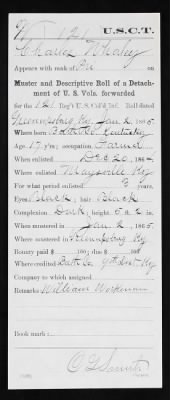 W 121 U.S.C.T.
Charles Whaley
Appears with rank of Pvt. on
Muster and Descriptive Roll of a Detach-
ment of U. S. Vols. forwarded
for the 121 Reg't U.S. Col'd Inf. Roll dated
Greensburg, Ky. Jan 2, 1865.
Where born Kentucky
Age 17 y'rs; occupation Farmer
When enlisted Dec 20, 1864.
Where enlisted Maysville Ky
For what period enlisted 3 years.
Eyes Black; hair Black
Complexion Dark; height 5 ft. 2 in.
When mustered in Jan 2, 1865.
Where mustered in Greensburg Ky
Bounty paid $ 100; due $ 100
Where credited Bath Co 9th Dist Ky
Company to which assigned
Remarks: William Workman
Book mark: